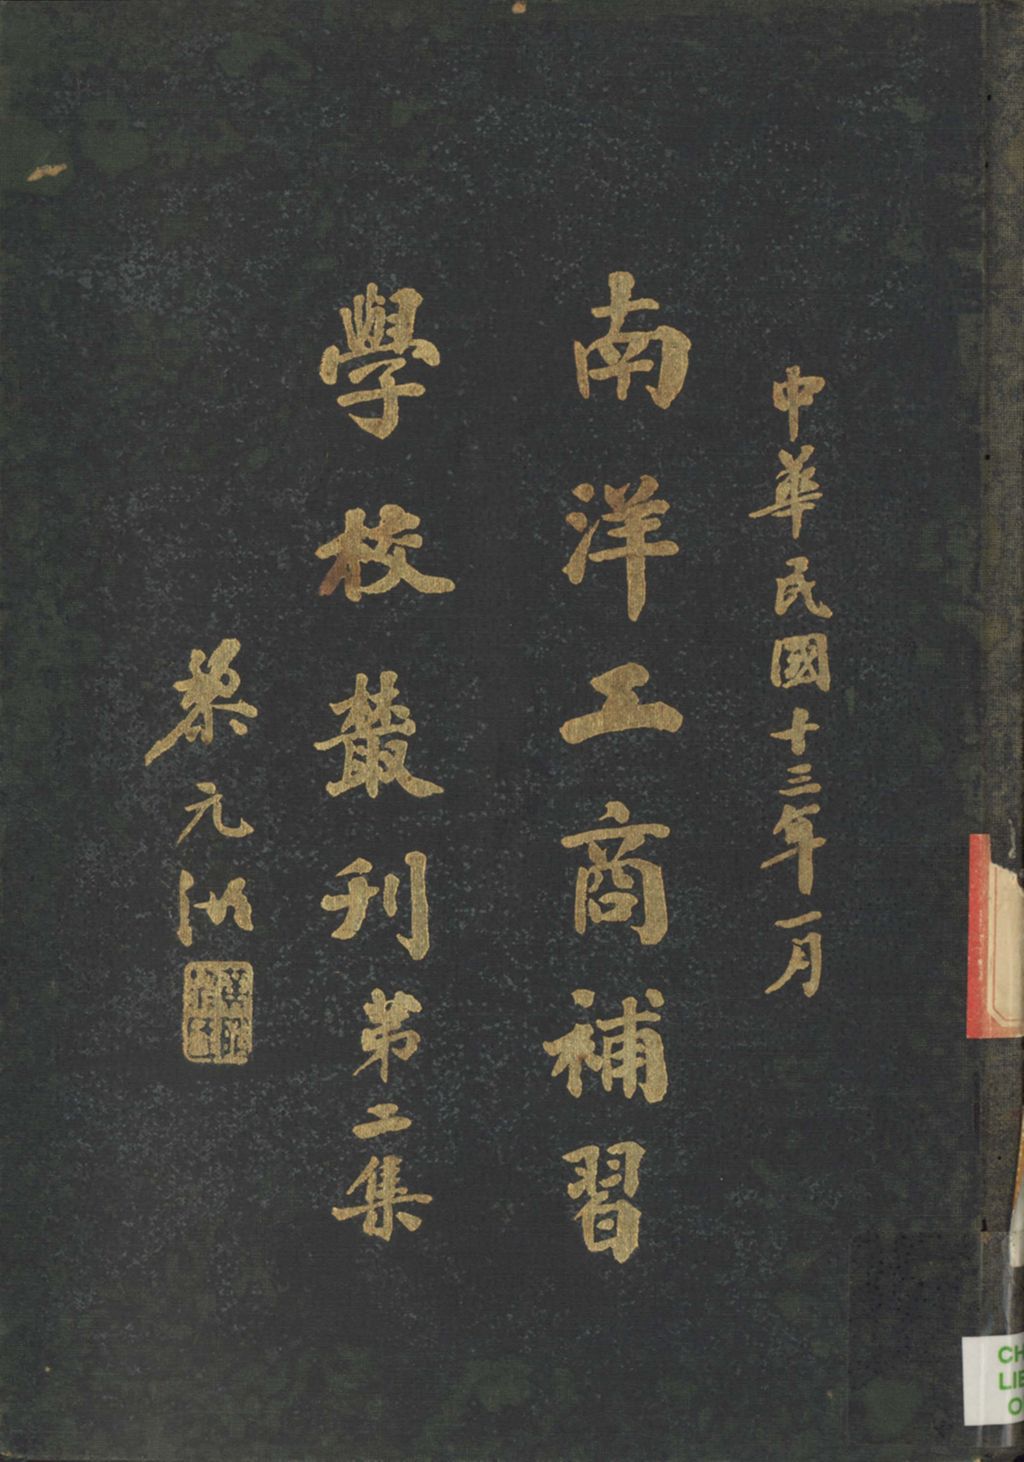 中華民國十三年一月
南洋工商補習
學校叢刊第二集
黎元洪
CH
LIB
O